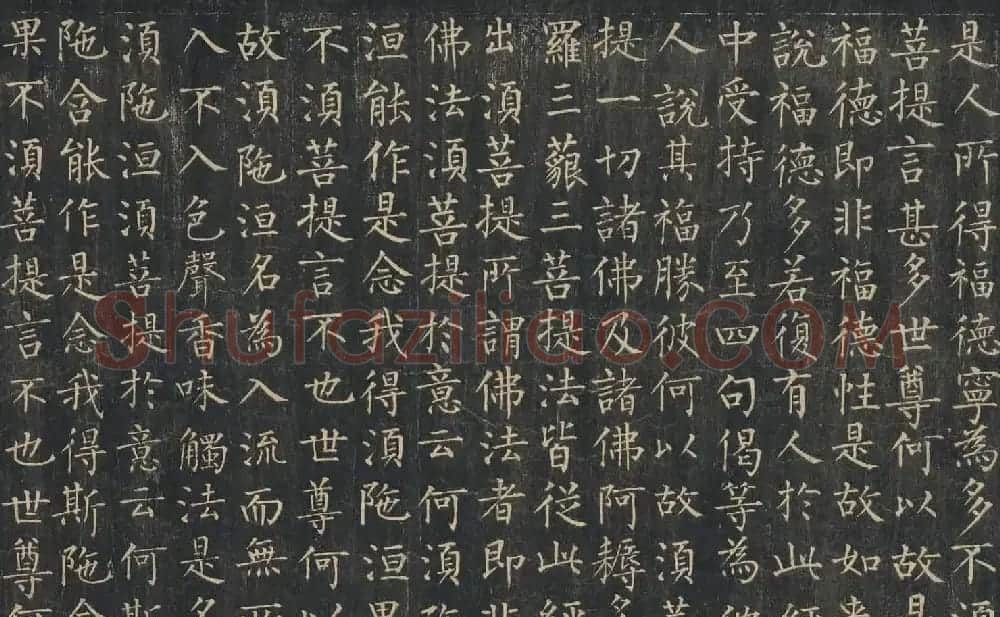 是人所得福德寧為多不湏
菩提言甚多世尊何以故是
福德即非福德性是故如来
說福德多若復有人於此經
中受持乃至四句偈等為
人說其福勝彼何以故湏菩
提一切諸佛及諸佛阿耨多
羅三藐三菩提法皆從此經
出湏菩提所謂佛法者即非
佛法湏菩提於意云何湏陁
洹能作是念我得湏陁洹果
不湏菩提言不也世尊何以
故湏陁洹名為入流而無所
入不入色聲香味觸法是名
湏陁洹湏菩提於意云何斯
陁含能作是念我得斯陁含
果不湏菩提言不也世尊何
Shufaziliao.COM